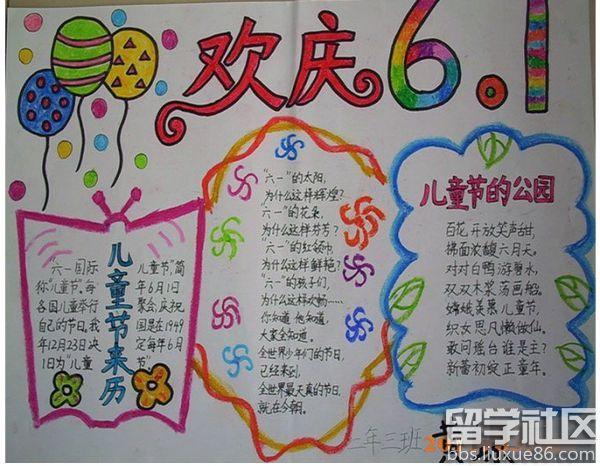 欢庆6.1
儿童节来历
六一国际
称"儿童节",每
各国儿童举行
自己的节日,我
年12月23日决
1日为"儿童
儿童节"简
年6月1日
聚会,庆祝
国是在1949
定每年6月
节"
"六一"的太阳,
为什么这样辉煌?
"六一"的花朵,
为什么这样芬芳?
"六一"的红领巾
为什么这样鲜艳?
"六一"的孩子们,
为什么这样欢畅……
你知道 他知道,
大家全知道。
全世界少年们的节日,
已经来到,
全世界最天真的节日,
就在今朝。
儿童节的公园
百花开放笑声甜,
拂面浓馥六月天。
对对白鸭游碧水,
双双木桨荡画船。
嫦娥羡慕儿童节,
织女思凡懒做仙。
敢问瑶台谁是主?
新蕾初绽正童年。
三年三班
留学社区
bbs.liuxue86.com